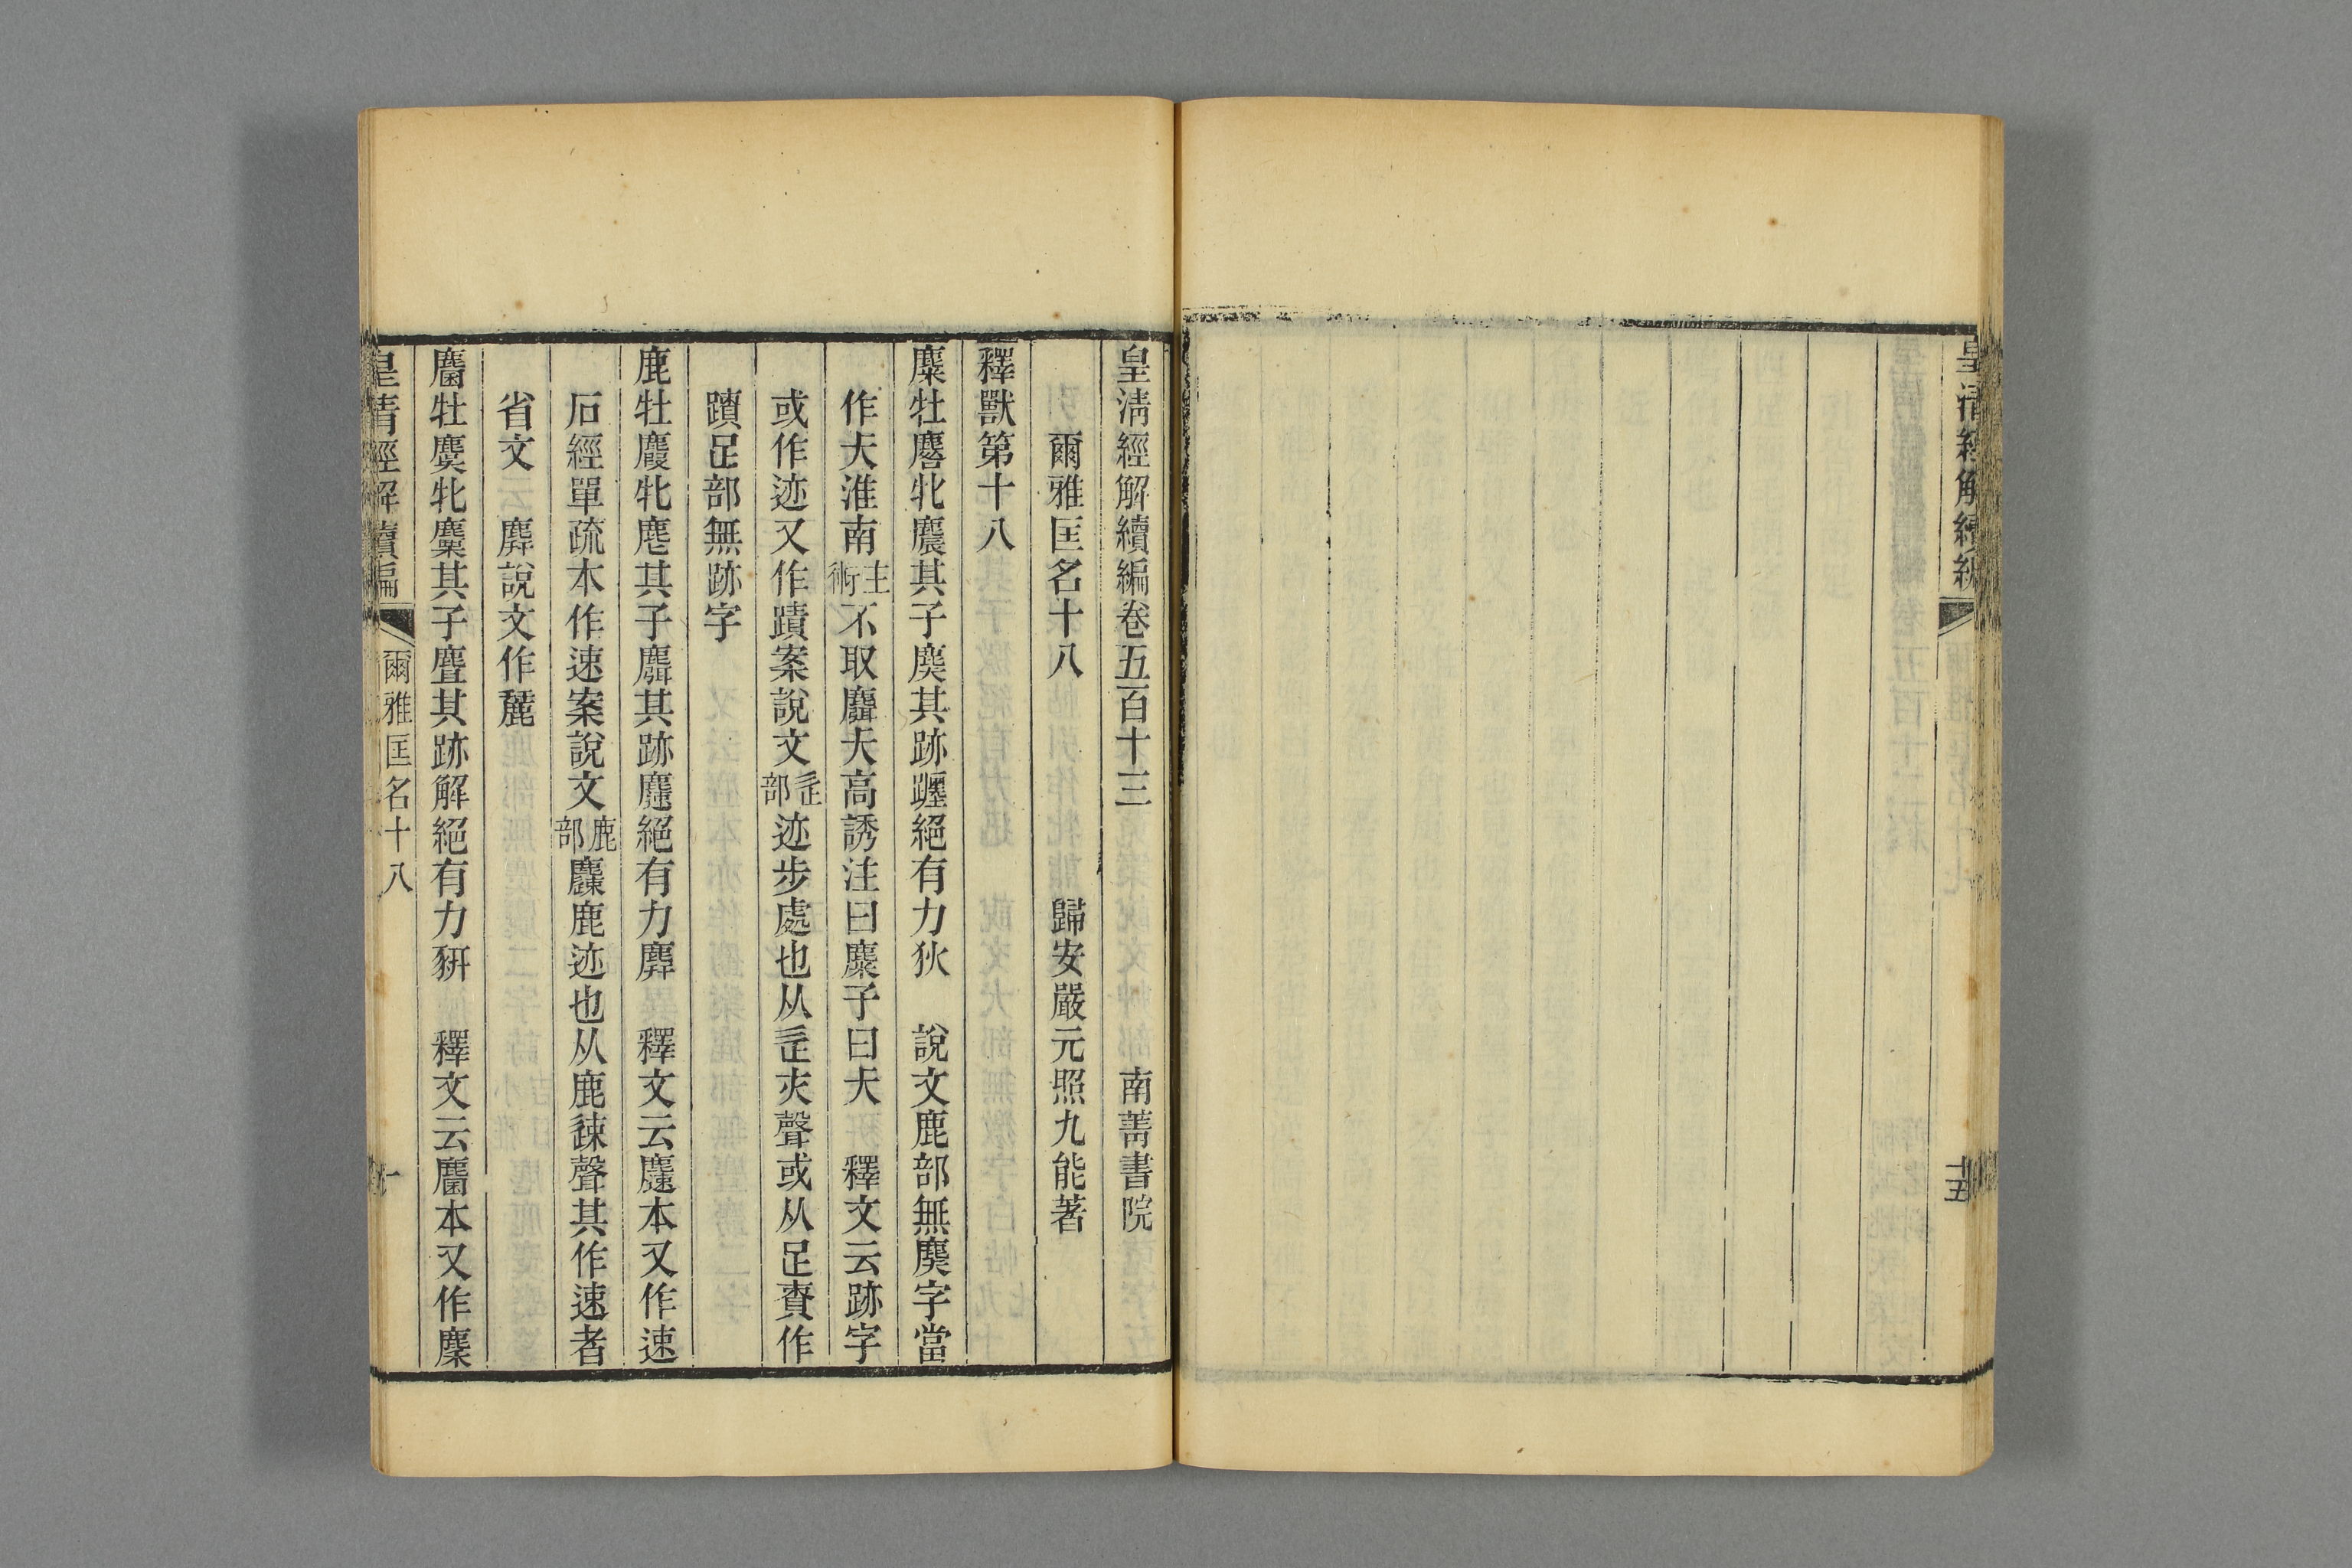 皇清經解續編
十五
皇淸經解續編卷五百十三 南菁書院
爾雅匡名十八 歸安嚴元照九能著
釋獸第十八
麋牡麔牝麎其子䴠其跡躔絕有力狄 說文鹿部無䴠字當
作夭淮南主術不取麛夭高誘注曰麋子曰夭 釋文云跡字
或作迹又作蹟案說文辵部迹步處也从辵亦聲或从足責作
蹟足部無跡字
鹿牡麚牝麀其子麛其跡速絕有力麉 釋文云麤本又作速
石經單疏本作速案說文鹿部䴪鹿迹也从鹿速聲其作速者
省文 麉說文作麗
麕牡麌牝麜其子麆其跡解絕有力豜 釋文云麕本又作麇
皇清經解續編 爾雅匡名十八 一